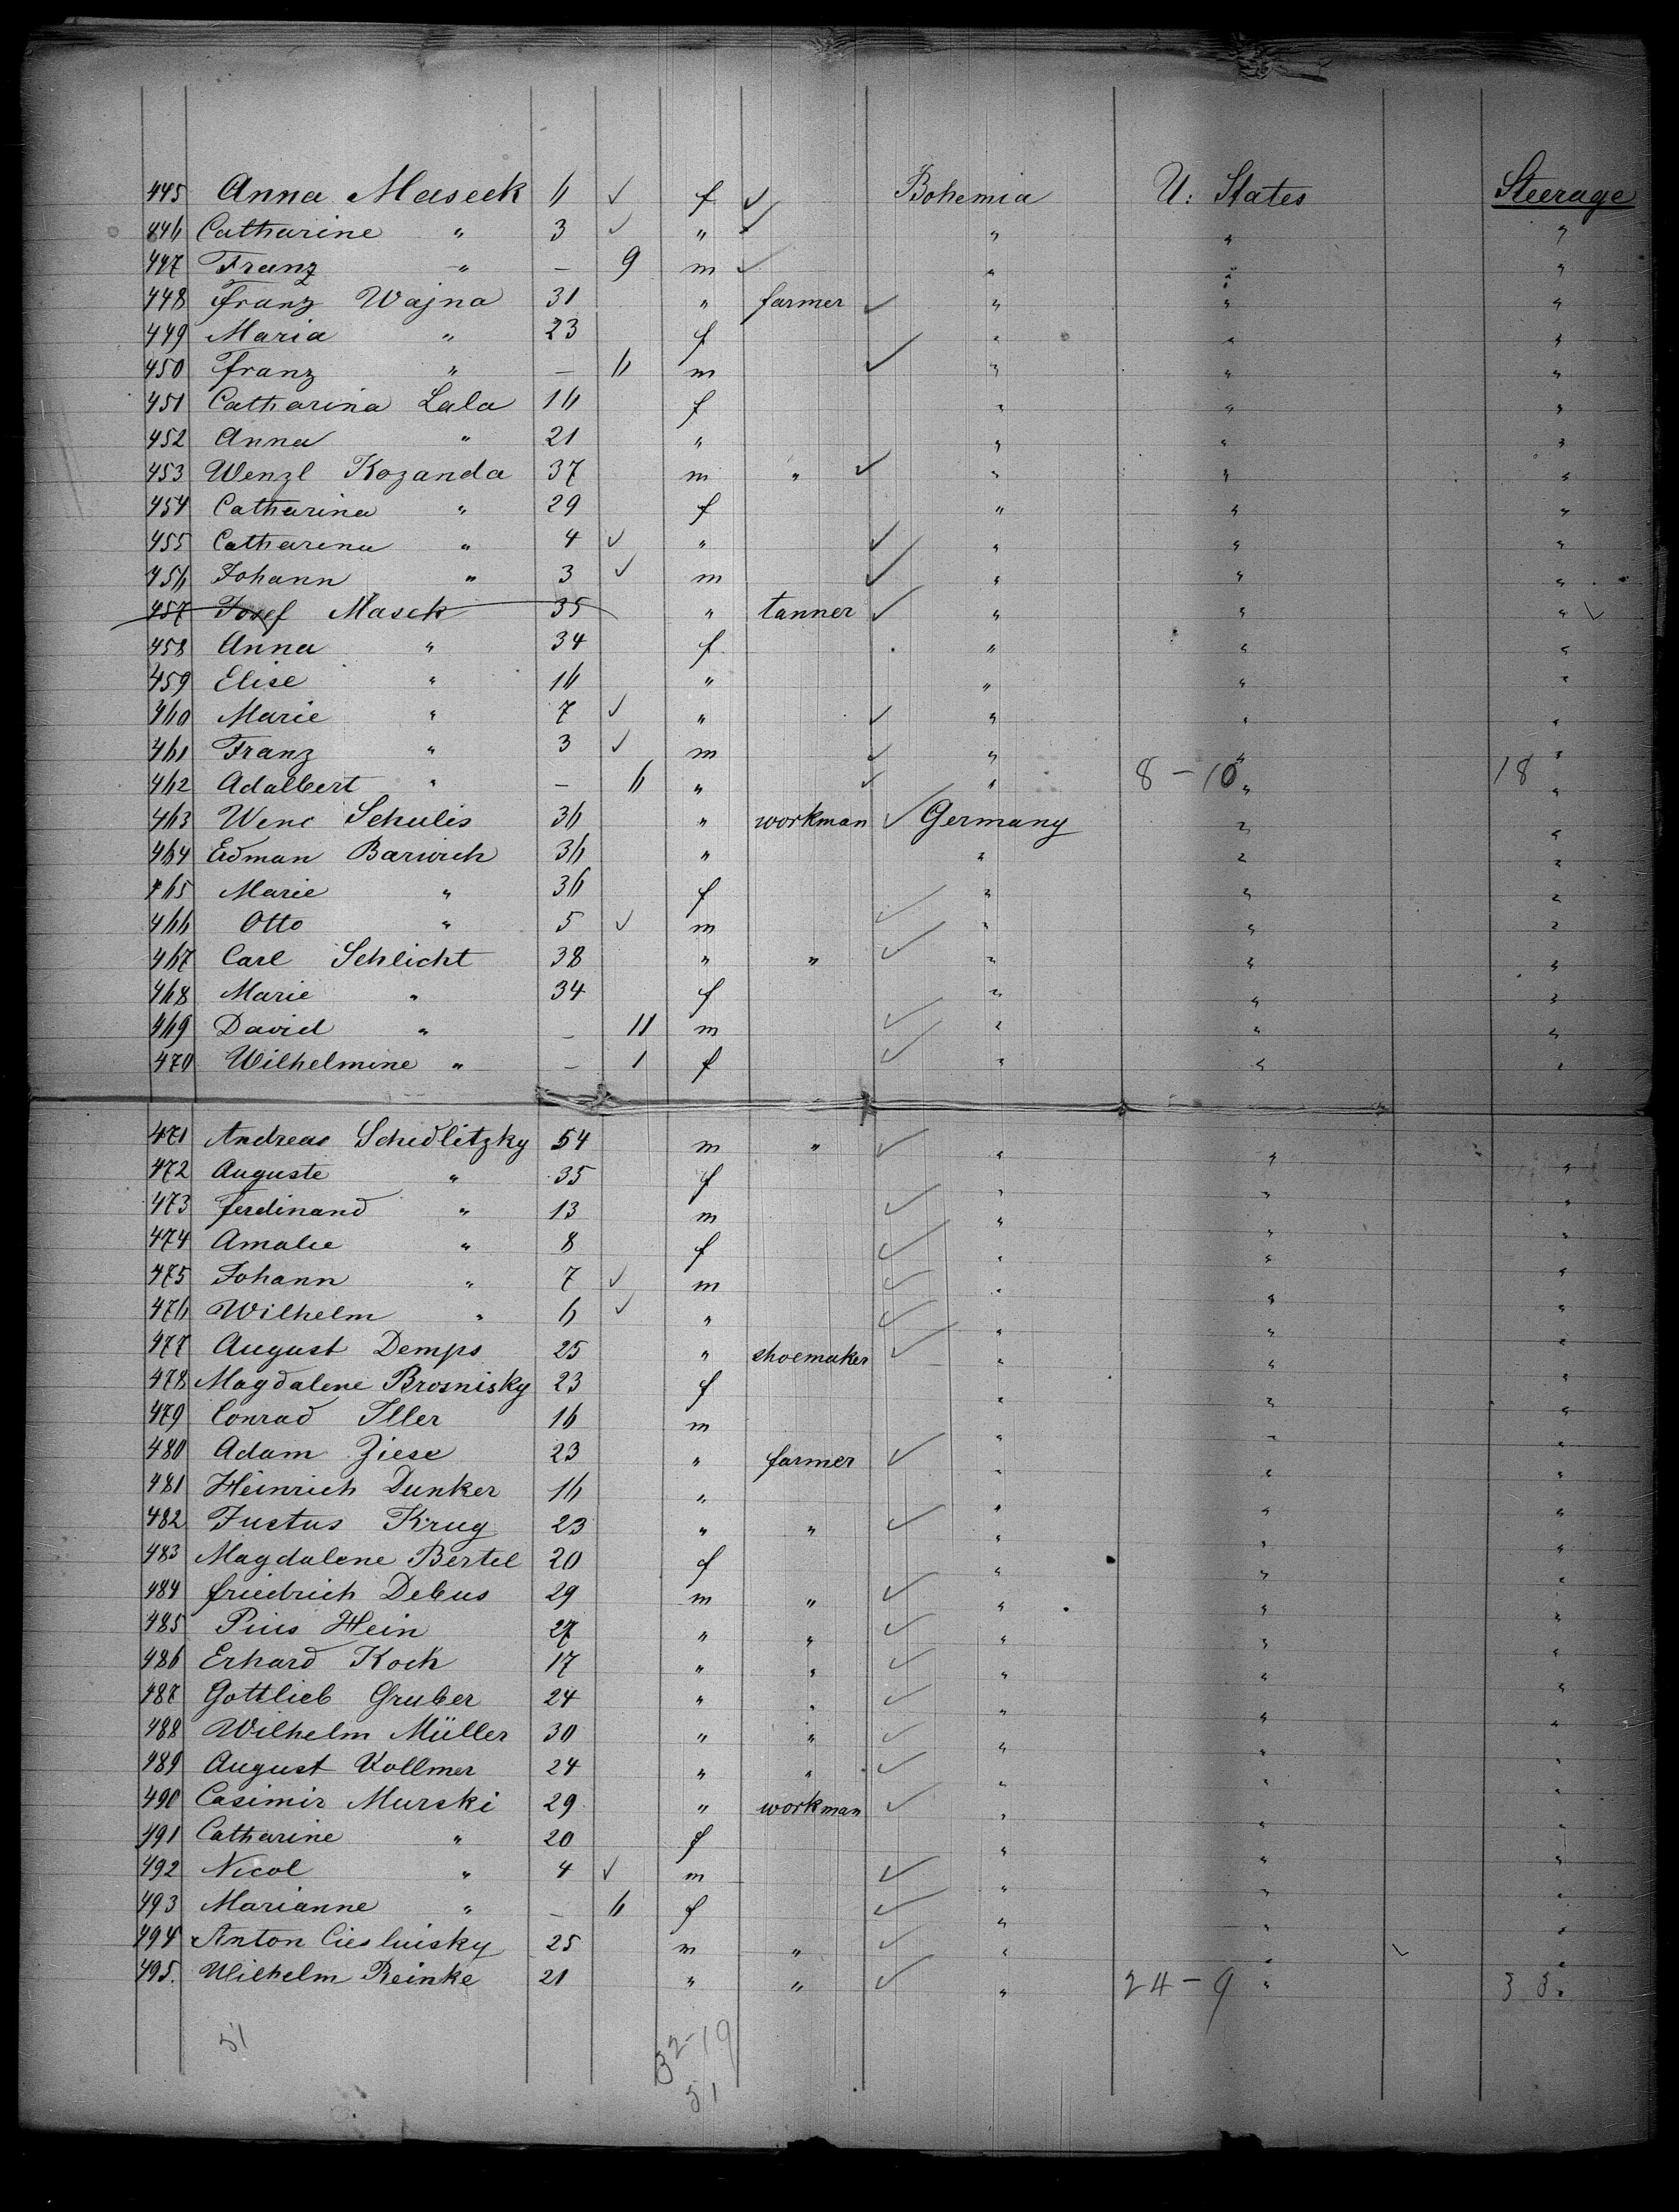 445 Anna Maseck 6 ✓ f ✓ Bohemia U: States Steerage
446 Catharine " 3 ✓ " ✓ " " "
447 Franz " — 9 m ✓ " " "
448 Franz Wajna 31 " farmer ✓ " " "
449 Maria " 23 f " " "
450 Franz " — 6 m ✓ " " "
451 Catharina Lala 16 f " " "
452 Anna " 21 " " " "
453 Wenzl Kozanda 37 m " ✓ " " "
454 Catharina " 29 f " " "
455 Catharina " 4 ✓ " ✓ " " "
456 Johann " 3 ✓ m ✓ " " "
457 Josef Masek 35 " tanner ✓ " " " ✓
458 Anna " 34 f " " "
459 Elise " 16 " " " "
460 Marie " 7 ✓ " ✓ " " "
461 Franz " 3 ✓ m ✓ " " "
462 Adalbert " — 6 " ✓ " 8 – 10 " 18 "
463 Wenc Schulis 36 " workman ✓ Germany " "
464 Edman Barwich 36 " " " "
465 Marie " 36 f ✓ " " "
466 Otto " 5 ✓ m ✓ " " "
467 Carl Schlicht 38 " " ✓ " " "
468 Marie " 34 f " " "
469 David " — 11 m ✓ " " "
470 Wilhelmine " — 1 f ✓ " " "
471 Andreas Schidlitzky 54 m " ✓ " " "
472 Auguste " 35 f " " "
473 Ferdinand " 13 m ✓ " " "
474 Amalie " 8 f ✓ " " "
475 Johann " 7 ✓ m ✓ " " "
476 Wilhelm " 6 ✓ " ✓ " " "
477 August Demps 25 " shoemaker ✓ " " "
478 Magdalene Brosnisky 23 f " " "
479 Conrad Iller 16 m " " "
480 Adam Ziese 23 " farmer ✓ " " "
481 Heinrich Dunker 16 " " " "
482 Justus Krug 23 " " ✓ " " "
483 Magdalene Bertel 20 f " " "
484 Friedrich Debus 29 m " ✓ " " "
485 Pius Hein 27 " " ✓ " " "
486 Erhard Koch 17 " " ✓ " " "
487 Gottlieb Gruber 24 " " ✓ " " "
488 Wilhelm Müller 30 " " ✓ " " "
489 August Vollmer 24 " " ✓ " " "
490 Casimir Murski 29 " workman ✓ " " "
491 Catharine " 20 f " " "
492 Nicol " 4 ✓ m ✓ " " "
493 Marianne " — 6 f ✓ " " "
494 Anton Cieslinsky 25 m " ✓ " " ✓ "
495. Wilhelm Reinke 21 " " ✓ " 24 – 9 " 33 "
51 32-19
51